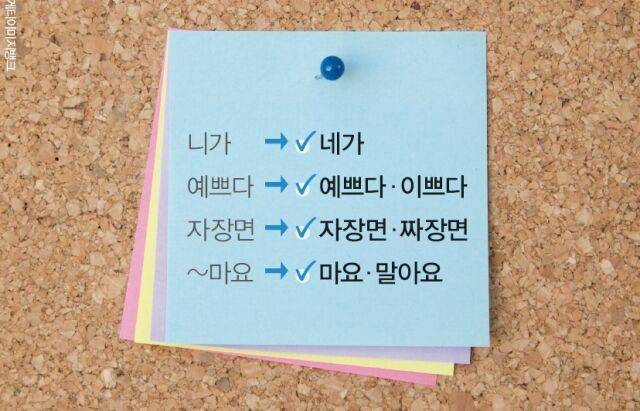 게티이미지뱅크
니가 → ✓ 네가
예쁘다 → ✓ 예쁘다·이쁘다
자장면 → ✓ 자장면·짜장면
~마요 → ✓ 마요·말아요